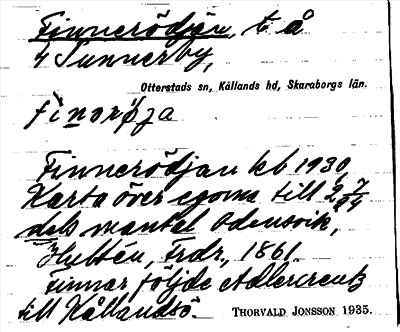 Finnerödjan, t. å
4 Sunnerby,
Otterstads sn, Kållands hd, Skaraborgs län.
finorøja
Finnerödjan kb 1930,
Karta över egorna till 2 7/24
dels mantal Odensvik,
Hultén, Frdr, 1861.
Finnar följde Adlercreutz
till Kållandsö.
THORVALD JONSSON 1935.